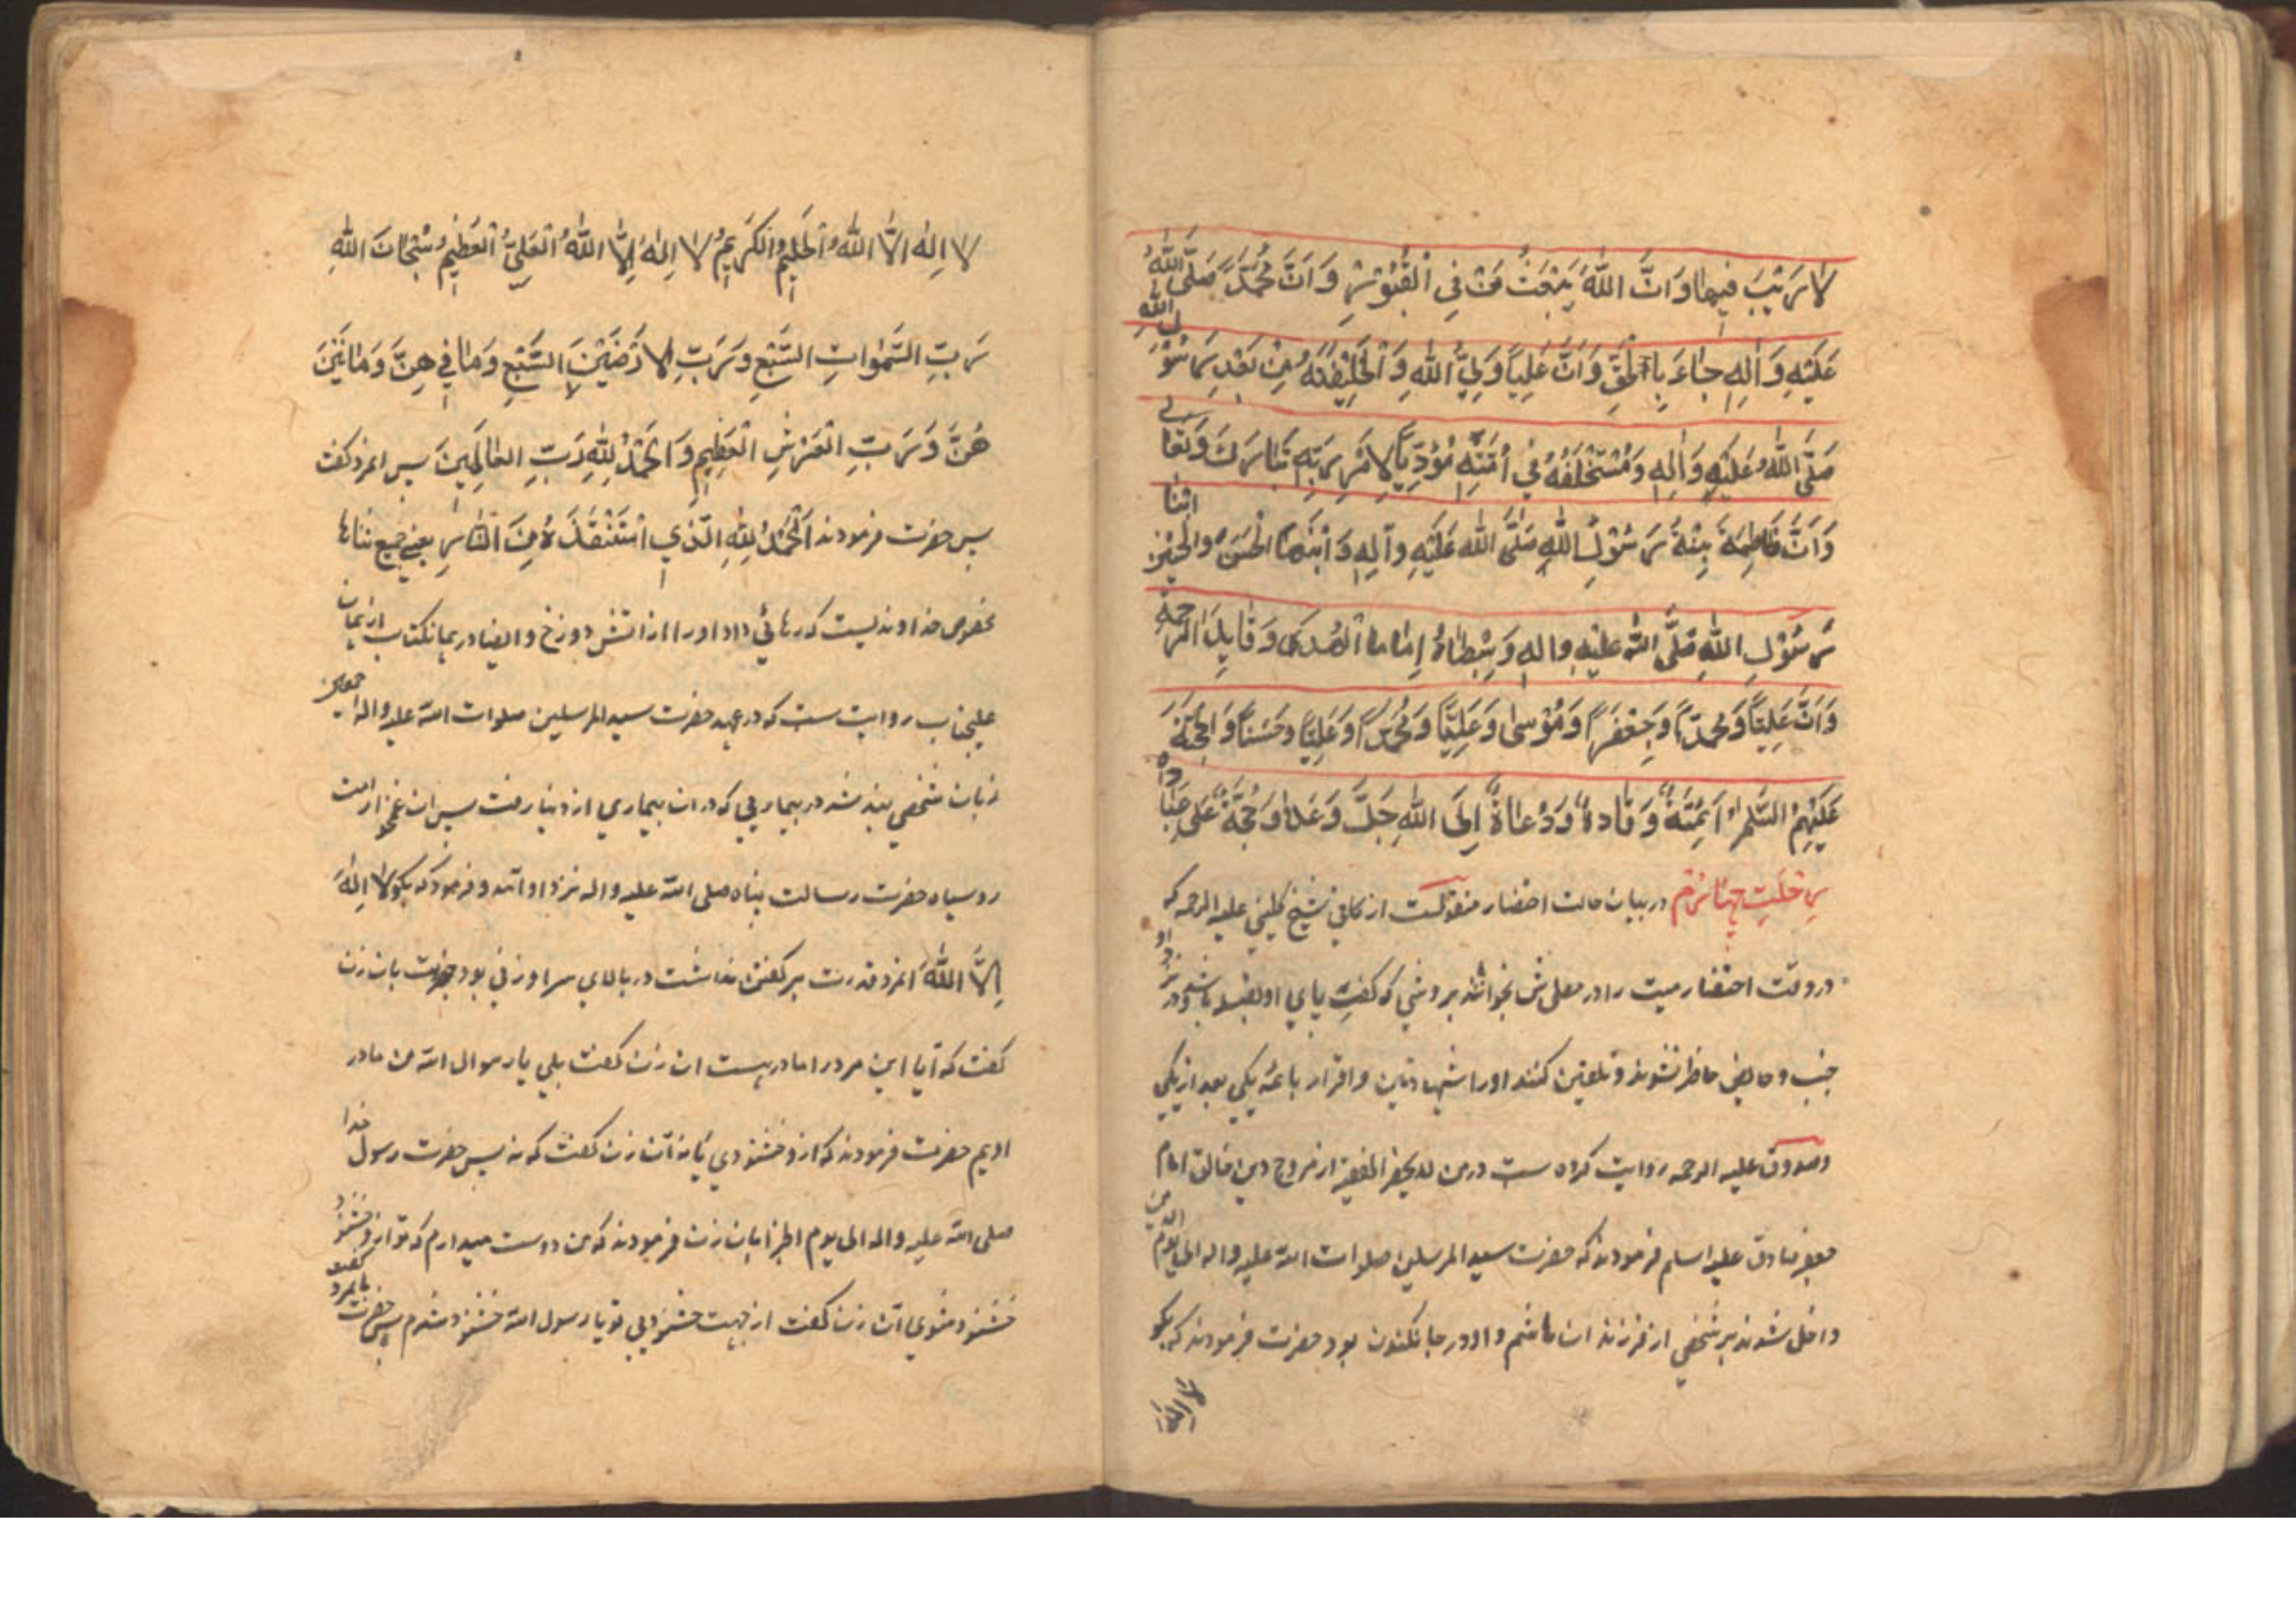 لَا رَيْبَ فِيهَا وَاَنَّ اللّٰهَ يَبْعَثُ مَنْ فِي الْقُبُوْرِ وَ اَنَّ مُحَمَّدً صَلَّى اللّٰهُ
عَلَيْهِ وَ اٰلِهِ جٰاءَ بِالْحَقِّ وَ اَنَّ عَلِياً وَلِيُّ اللّٰهِ وَ الْخَلِيْفَةُ مِنْ بَعْدِ رَسُوْلِ اللّٰهِ
صَلَّى اللّٰهُ عَلَيْهِ وَ اٰلِهِ وَ مُسْتَخْلَفُهُ فِي اُمَّتِهِ مُؤَدِّياً لِاَمْرِ رَبِّهِ تَبَارَكَ وَ تَعَالى
وَ اَنَّ فَاطِمَةَ بِنْةُ رَسُوْلِ اللّٰهِ صَلَّى اللّٰه عَلَيْهِ وآلِهِ وَ ابْنَهَا الْحَسَنَ والْحُسَيْن ابْنَا
رَسُوْلِ اللّٰهِ صَلَّى اللّٰه عَلَيْهِ واله وَ سِبْطَاهُ اِمَامَا الْهُدىٰ وَ قَايِدَ الرَّحمةِ
وَ اَنَّ عَلِيّاً وَ محمّداً وَ جَعْفَراً وَ مُوْسىٰ وَ عَلِيّاً وَ مُحَمّداً وَ عَلِيّاً وَ حَسَناً وَ الْحُجَّةَ
عَلَيْهِمُ السَّلامُ اَئِمَّةً وَ قٰادةً وَ دُعٰاةً اِلَى اللّٰهِ جَلَّ وَ عَلاٰ وَ حُجَّةً عَلى عِبَادِه
در بيان حالت احتضار منقولست از كافي شيخ كليني عليه الرحمه كه
در وقت احتضار ميت را در مصلى ش بخوابانند بروشي كه كفت پاي او بقبله باشد و در نزد او
جنب و حايض حاظر نشوند و تلقين كنند اورا شهادتين و اقرار بائمه يكي بعد از يكي
و صدوق عليه الرحمه روايت كرده ست در من لا يحضر الفقيه از امام
جعفر صادق عليه اسلم فرمودند كه حضرت سيد المرسلين صلوات الله عليه و اله الى يوم الدين
داخل شوند بر شخصي از فرزند ان هاشم و او در جانكندن بود حضرت فرمودند كه بكو
لا اِلٰه اِلَّا اللّٰهُ الْحَلِيمُ الْكَرِيمُ لا اِلٰهَ اِلَّا اللّٰهُ الْعَلِيُّ الْعَظِيمُ سُبْحَانَ اللّٰهِ
رَبِّ السَّمٰوَاتِ السَّبْعِ وَ رَبِّ الاَرَضِيْنَ السَّبْعِ وَ مٰا فِي هِنَّ وَ مَا بَيْنَ
هُنَّ وَ رَبِّ الْعَرْشِ الْعَظِيمِ وَ الحَمْدُ لِلّٰهِ رَبِّ العٰالَمِينَ پس انمرد كفت
پس حضرت فرمودند اَلْحَمْدُ لِلّٰهِ الَّذِي اسْتَنْقَذَهُ مِنَ النَّارِ يعني جميع ثناها
مخصوص خداونديست كه رهائي داد او را از اتش دوزخ و ايضا در همانكتاب از همان
عليجناب روايت ست كه در عهد حضرت سيد المرسلين صلوات الله عليه و اله اجمعين
زبان شخصي بند شد در بيماريي كه در ان بيماري از دنيا رفت پس ان غمخوار امت
روسياه حضرت رسالت پناه صلى الله عليه و اله نزد او آمد و فرمود كه بكو لا اِلٰهَ
اِلَّا اللّٰهُ انمرد قدرت بر كفتن نداشت در بالاي سر او زني بود حضرت بان زن
كفت كه آيا اين مرد را مادر هست ان زن كفت بلي يا رسوال الله من مادر
اويم حضرت فرمودند كه از و خشنودي يا نه آن زن كفت كه نه پس حضرت رسول خدا
صلى الله عليه و اله الى يوم الجزا بان زن فرمودند كه من دوست ميدارم كه تو از و خشنود
خشنود شوي آن زن كفت از جهت خشنودي تو يا رسول الله خشنود شدم پس حضرت بانمرد كفت